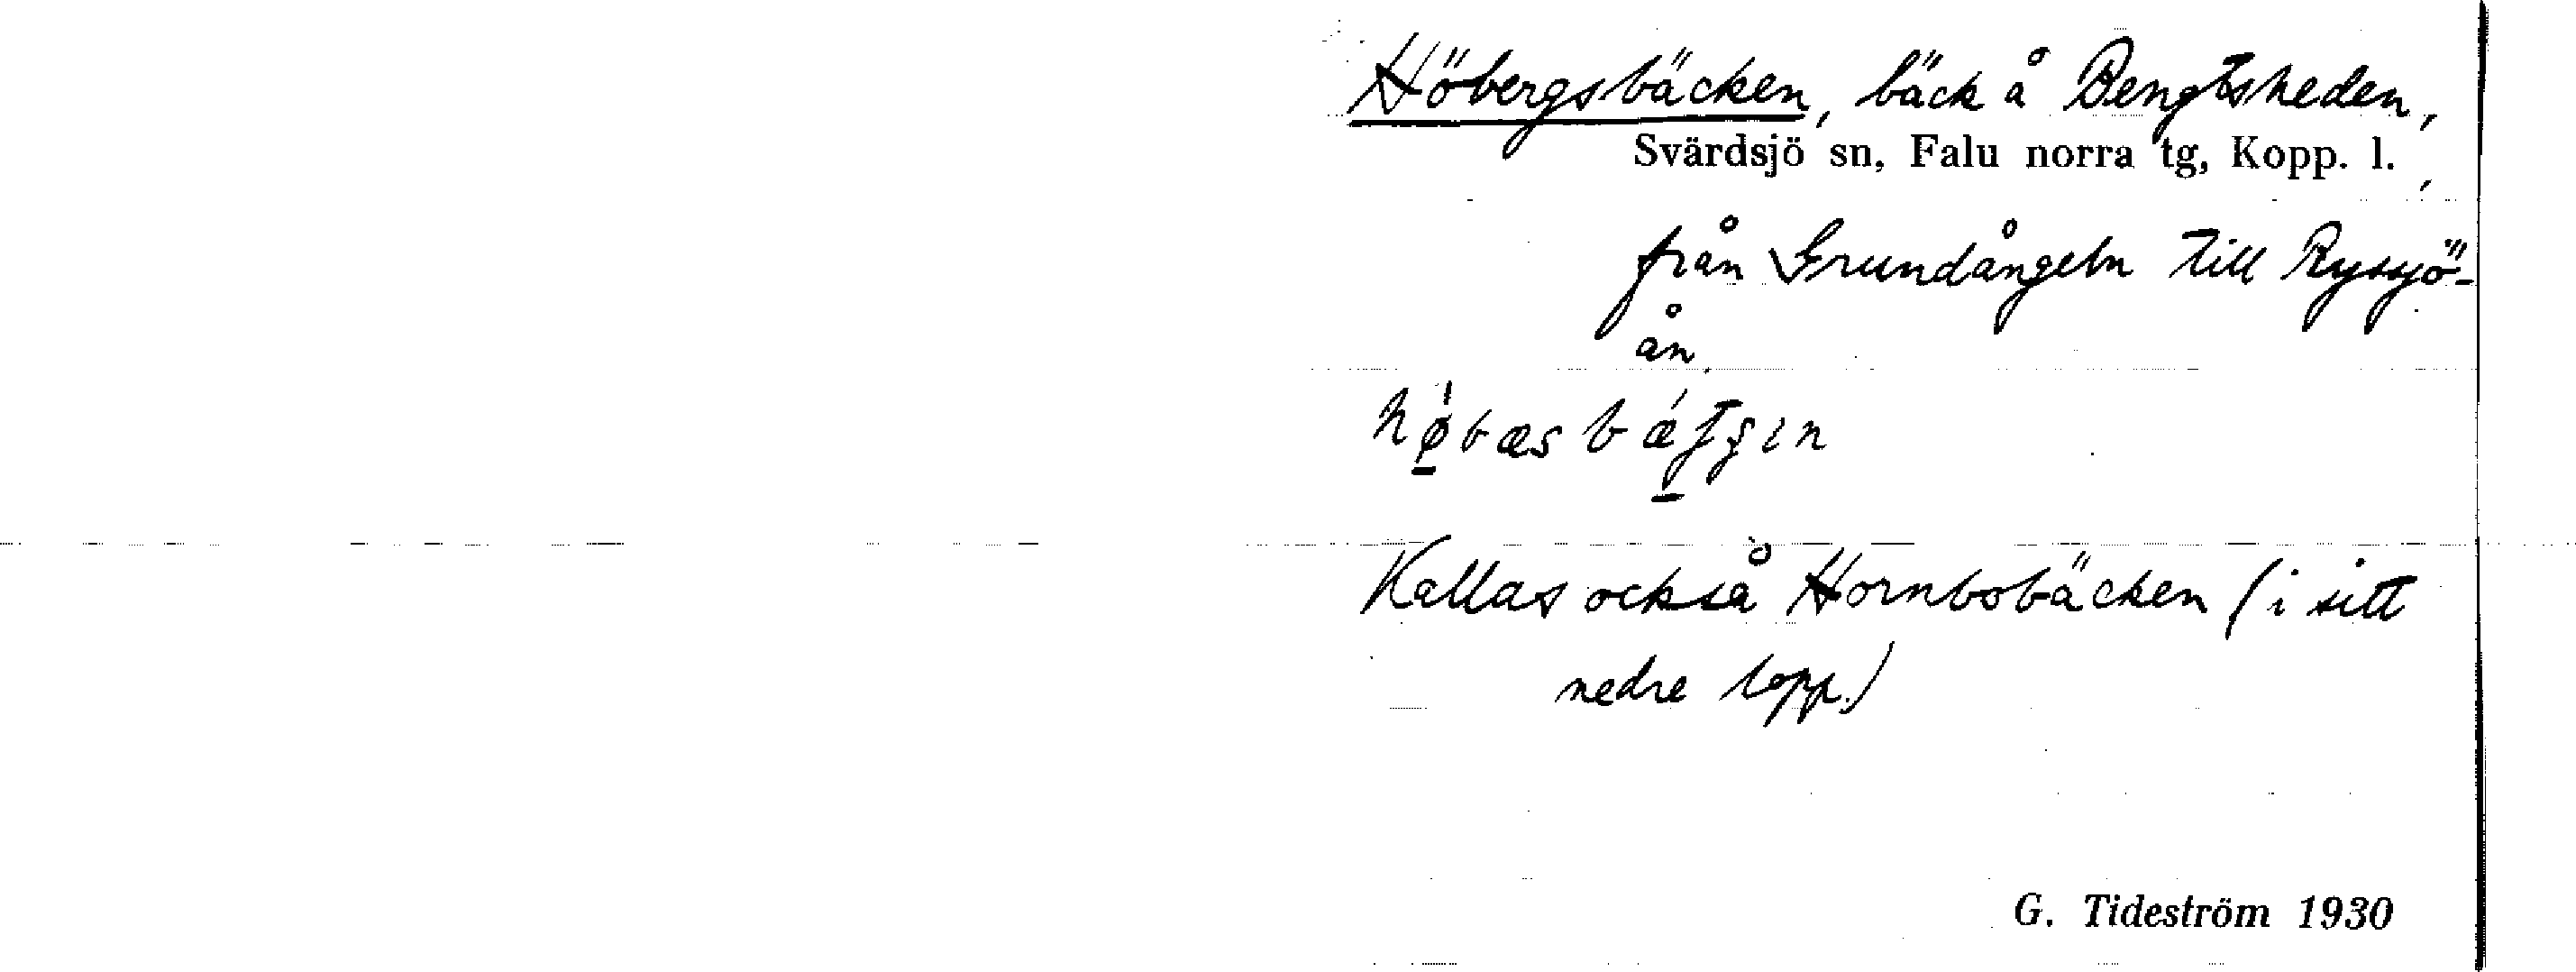 Höbergsbäcken, bäck å Bengtsheden,
Svärdsjö sn, Falu norra tg, Kopp. l.,
från Grundångeln till Ryssjö-
ån.
Kallas också Hornbobäcken (i sitt
nedre lopp.)
G. Tideström 1930